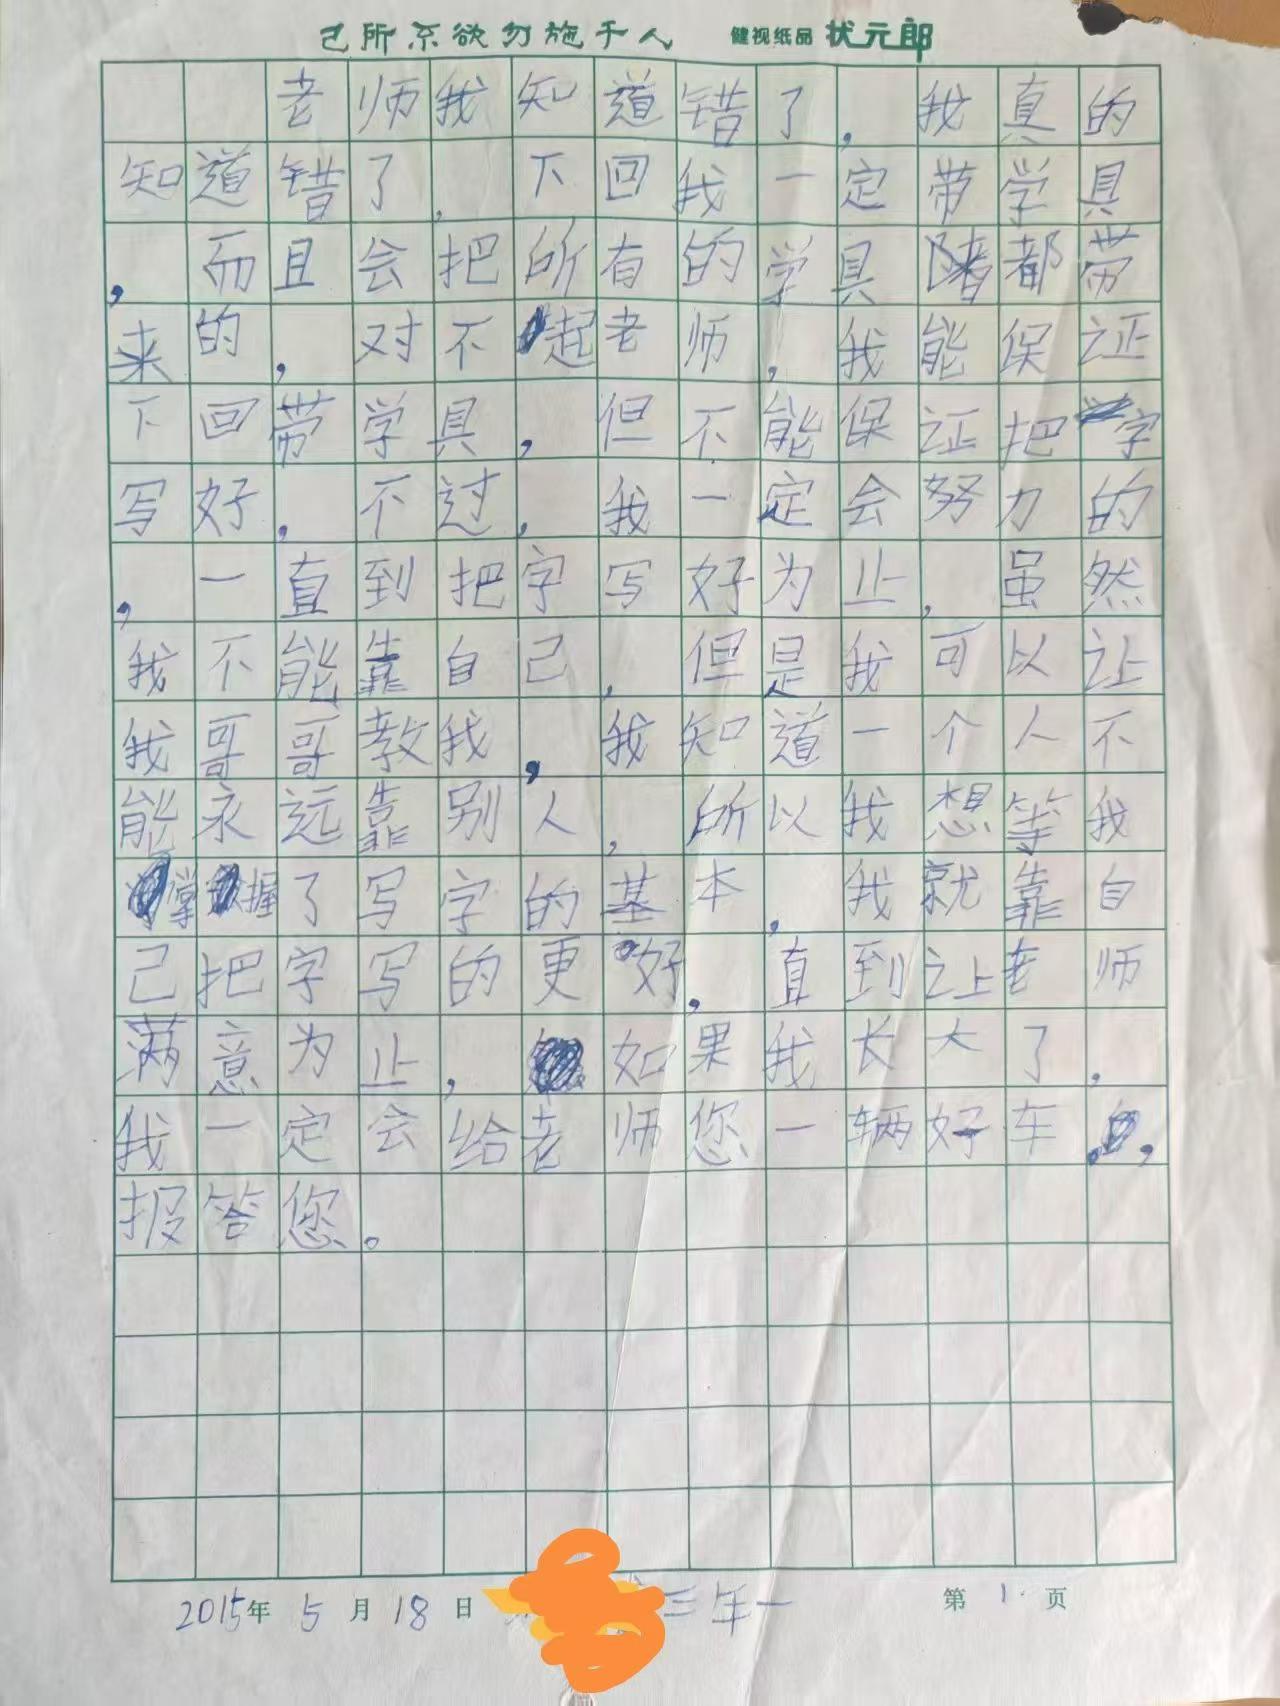 己所不欲勿施于人 健视纸品 状元郎
老师我知道错了，我真的
知道错了，下回我一定带学具
，而且会把所有的学具都带
来的，对不起老师，我能保证
下回带学具，但不能保证把字
写好，不过，我一定会努力的
，一直到把字写好为止，虽然
我不能靠自己，但是我可以让
我哥哥教我，我知道一个人不
能永远靠别人，所以我想等我
掌握了写字的基本，我就靠自
己把字写的更好，直到让老师
满意为止，如果我长大了，
我一定会给老师您一辆好车，
报答您。
2015年 5月18日 三年一 第1页